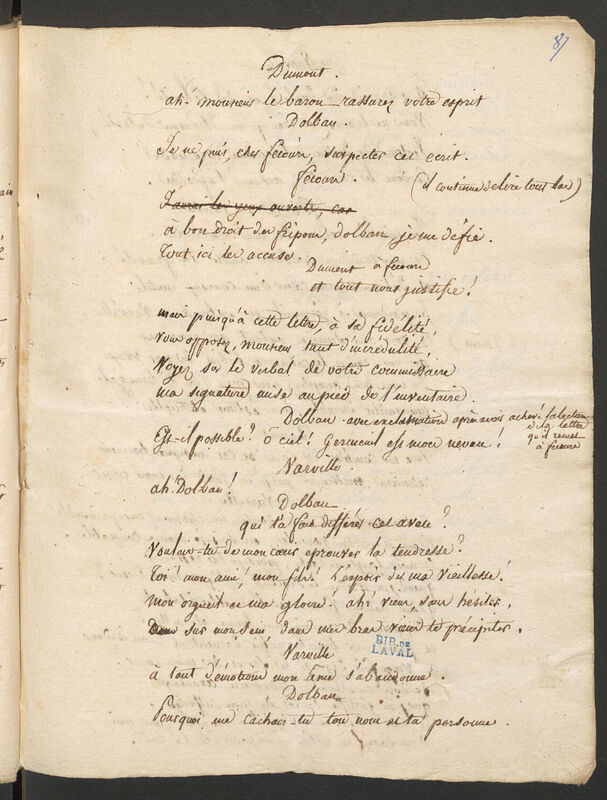 87
Dumont.
ah- monsieur le baron rassurez votre esprit
Dolban.
Je ne puis, cher fecourt, suspecter cet écrit.
fecourt. (il continue de lire tout bas)
J'aurai les yeux ouverts, car
à bon droit des fripons, dolban, je me défie.
Tout ici les accuse.
Dumont à fecourt
et tout nous justifie!
mais puisqu'à cette lettre, à sa fidélité,
vous opposez, monsieur tant d'incrédulité,
Voyez sur le verbal de votre commissaire
ma signature mise au pied de l'inventaire.
Dolban avec exclamation après avoir achevé la lecture
de la lettre
qu'il remet
à fecourt
Est-il possible? ô ciel! Germeuil est mon neveu!
Varville.
ah! Dolban!
Dolban
qui t'a fait différer cet aveu?
Voulais-tu de mon cœur éprouver la tendresse?
Toi! mon ami! mon fils! l'espoir de ma vieillesse!
mon orgueil et ma gloire! ah! viens, sans hésiter,
sur mon sein, dans mes bras viens te précipiter.
BIB. DE
LAVAL
Varville
à tant d'émotions mon âme s'abandonne.
Dolban
Pourquoi me cachais-tu ton nom et ta personne.